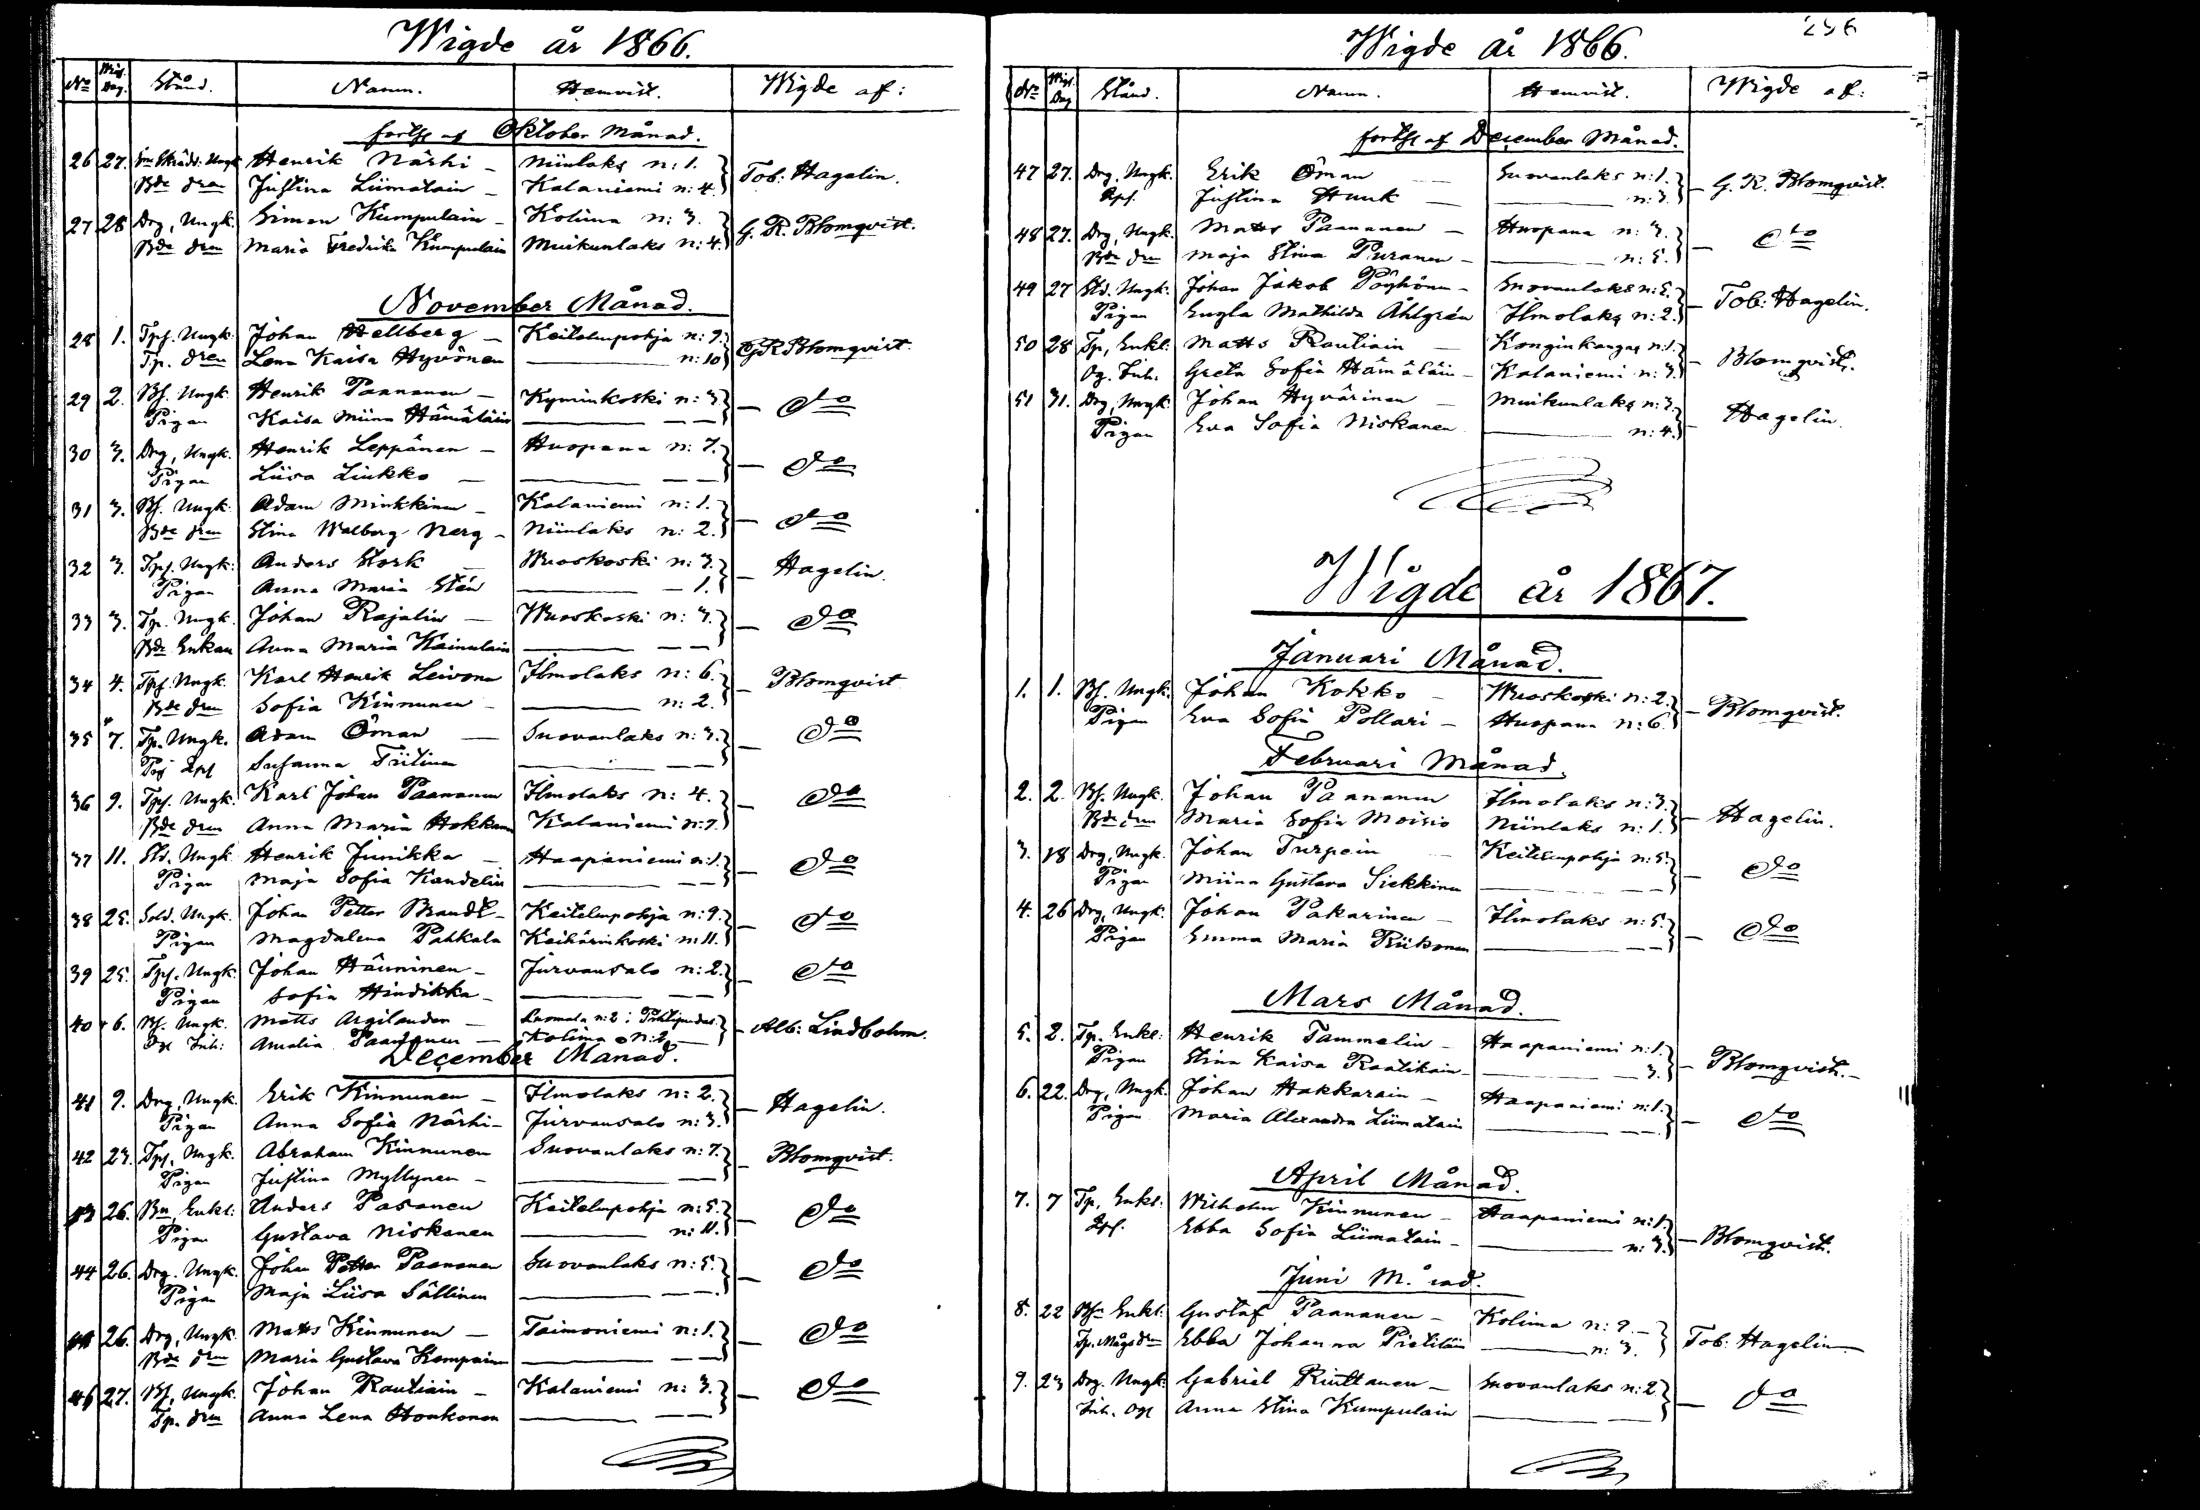 Wigde år 1866.
No Wigs. Dag. Stånd. Namn. Hemvist. Wigde af:
forts af Oktober Månad.
26 27. Ungk Henrik Närhi – Niinlaks n: 1.
Bde drn Justina Liimatain – Kalaniemi n: 4. Tob: Hagelin.
27 28 Drg, Ungk. Simon Kumpulain – Kolima n: 3.
Bde drn Maria Fredrika Kumpulain Muikunlaks n: 4. G. R. Blomqvist.
November Månad.
28 1. Tpf. Ungk. Johan Hellberg – Keitelempohja n: 9.
Tp. dren Lena Kaisa Hyvönen n: 10 G R Blomqvist
29 2. Bf. Ungk. Henrik Paananen – Kyminkoski n: 3.
Pigan Kaisa Miina Hämäläin — — – do
30 3. Drg, Ungk. Henrik Leppänen – Huopana n: 7.
Pigan Liisa Liukko — — — – do
31 3. Bf. Ungk. Adam Minkkinen – Kalaniemi n: 1.
Bde drn Stina Walborg Nerg – Niinlaks n: 2. – do
32 3. Tpf. Ungk: Anders Stork – Wuoskoski n: 3.
Pigan Anna Maria Stén — 1. – Hagelin.
33 3. Tp. Ungk. Johan Rajalin — Wuoskoski n: 3.
Bde Enkan Anna Maria Kainulain — — – do
34 4. Tpf. Ungk. Karl Henrik Leivonen Ilmolaks n: 6.
Bde drn Sofia Kinnunen – n: 2. – Blomqvist
35 7. Tp. Ungk. Adam Öman — Suovanlaks n: 3.
Susanna Tiitinen — — – do
36 9. Tpf. Ungk. Karl Johan Paananen Ilmolaks n: 4.
Bde drn Anna Maria Hokkanen Kalaniemi n: 7. – do
37 11. Std. Ungk Henrik Junikka – Haapaniemi n: 1.
Pigan Maja Sofia Kandelin — — – do
38 25. Sold. Ungk. Johan Petter Brandt – Keitelempohja n: 9.
Pigan Magdalena Pahkala Keihärinkoski n: 11. – do
39 25. Tpf. Ungk. Johan Hänninen – Jurvansalo n: 2.
Pigan Sofia Hindikka – — — – do
40 6. Bf. Ungk. Matts Argilander — n: 2 i Pihtipudas.
Inh: Amalia Paananen — Kolima n: 2 – Alb: Lindbohm.
December Månad.
41 9. Drg, Ungk. Erik Kinnunen – Ilmolaks n: 2.
Pigan Anna Sofia Närhi – Jurvansalo n: 3. – Hagelin.
42 23. Tpf. Ungk. Abraham Kinnunen Suovanlaks n: 7.
Pigan Justina Myllynen – — — – Blomqvist.
43 26. Bn, Enkl: Anders Pasanen Keitelempohja n: 5.
Pigan Gustava Niskanen n: 11. – do
44 26. Drg. Ungk. Johan Petter Paananen Suovanlaks n: 5.
Pigan Maja Liisa Sällinen — — – do
26. Drg, Ungk. Matts Kinnunen — Taimoniemi n: 1.
Bde drn Maria Gustava Kempain — — – do
46 27. Bf, Ungk. Johan Rautiain – Kalaniemi n: 3.
Tp. drn Anna Lena Honkonen — — – do
Wigde år 1866.
No Wigs. Dag Stånd. Namn. Hemvist. Wigde af:
forts af December Månad.
47 27. Drg, Ungk. Erik Öman — Suovanlaks n: 1.
Justina Hunk — n: 3. – G. R. Blomqvist.
48 27. Drg, Ungk. Matts Paananen – Huopana n: 3.
Bde drn Maja Stina Puranen – n: 5. – do
49 27 Std. Ungk. Johan Jakob Pöyhönen – Suovanlaks n: 5.
Pigan Engla Mathilda Åhlgrén Ilmolaks n: 2. – Tob: Hagelin.
50 28 Tp, Enkl: Matts Rautiain — Konginkangas n: 1.
Inh: Greta Sofia Hämäläin – Kalaniemi n: 3. – Blomqvist.
51 31. Drg, Ungk. Johan Hyvärinen – Muikunlaks n: 3.
Pigan Eva Sofia Niskanen n: 4. – Hagelin.
Wigde år 1867.
Januari Månad.
1. 1. Bf. Ungk. Johan Kokko – Wuoskoski n: 2.
Pigan Eva Sofia Pollari – Huopana n: 6. – Blomqvist.
Februari Månad.
2. 2 Bf. Ungk. Johan Paananen Ilmolaks n: 3.
Bde drn Maria Sofia Moisio Niinlaks n: 1. – Hagelin.
3. 18 Drg, Ungk. Johan Turpein — Keitelempohja n: 5.
Pigan Miina Gustava Siekkinen — — – do
4. 26 Drg, Ungk. Johan Pakarinen – Ilmolaks n: 5.
Pigan Emma Maria Riikonen — — – do
Mars Månad.
5. 2. Tp. Enkl: Henrik Tammelin – Haapaniemi n: 1.
Pigan Stina Kaisa Raatikain – 3. – Blomqvist. –
6. 22. Drg, Ungk. Johan Hakkarain – Haapaniemi n: 1.
Pigan Maria Alexandra Liimatain — — – do
April Månad.
7. 7 Tp, Enkl: Wilhelm Kinnunen – Haapaniemi n: 1.
Ebba Sofia Liimatain – n: 3. – Blomqvist.
Juni Månad.
8. 22 Bfn Enkl: Gustaf Paananen – Kolima n: 9. –
Tp. Mågs drn Ebba Johanna Pietiläin n: 3. Tob: Hagelin
9. 23 Drg. Ungk: Gabriel Rinttanen – Suovanlaks n: 2
Inh. Anna Stina Kumpulain — — – do